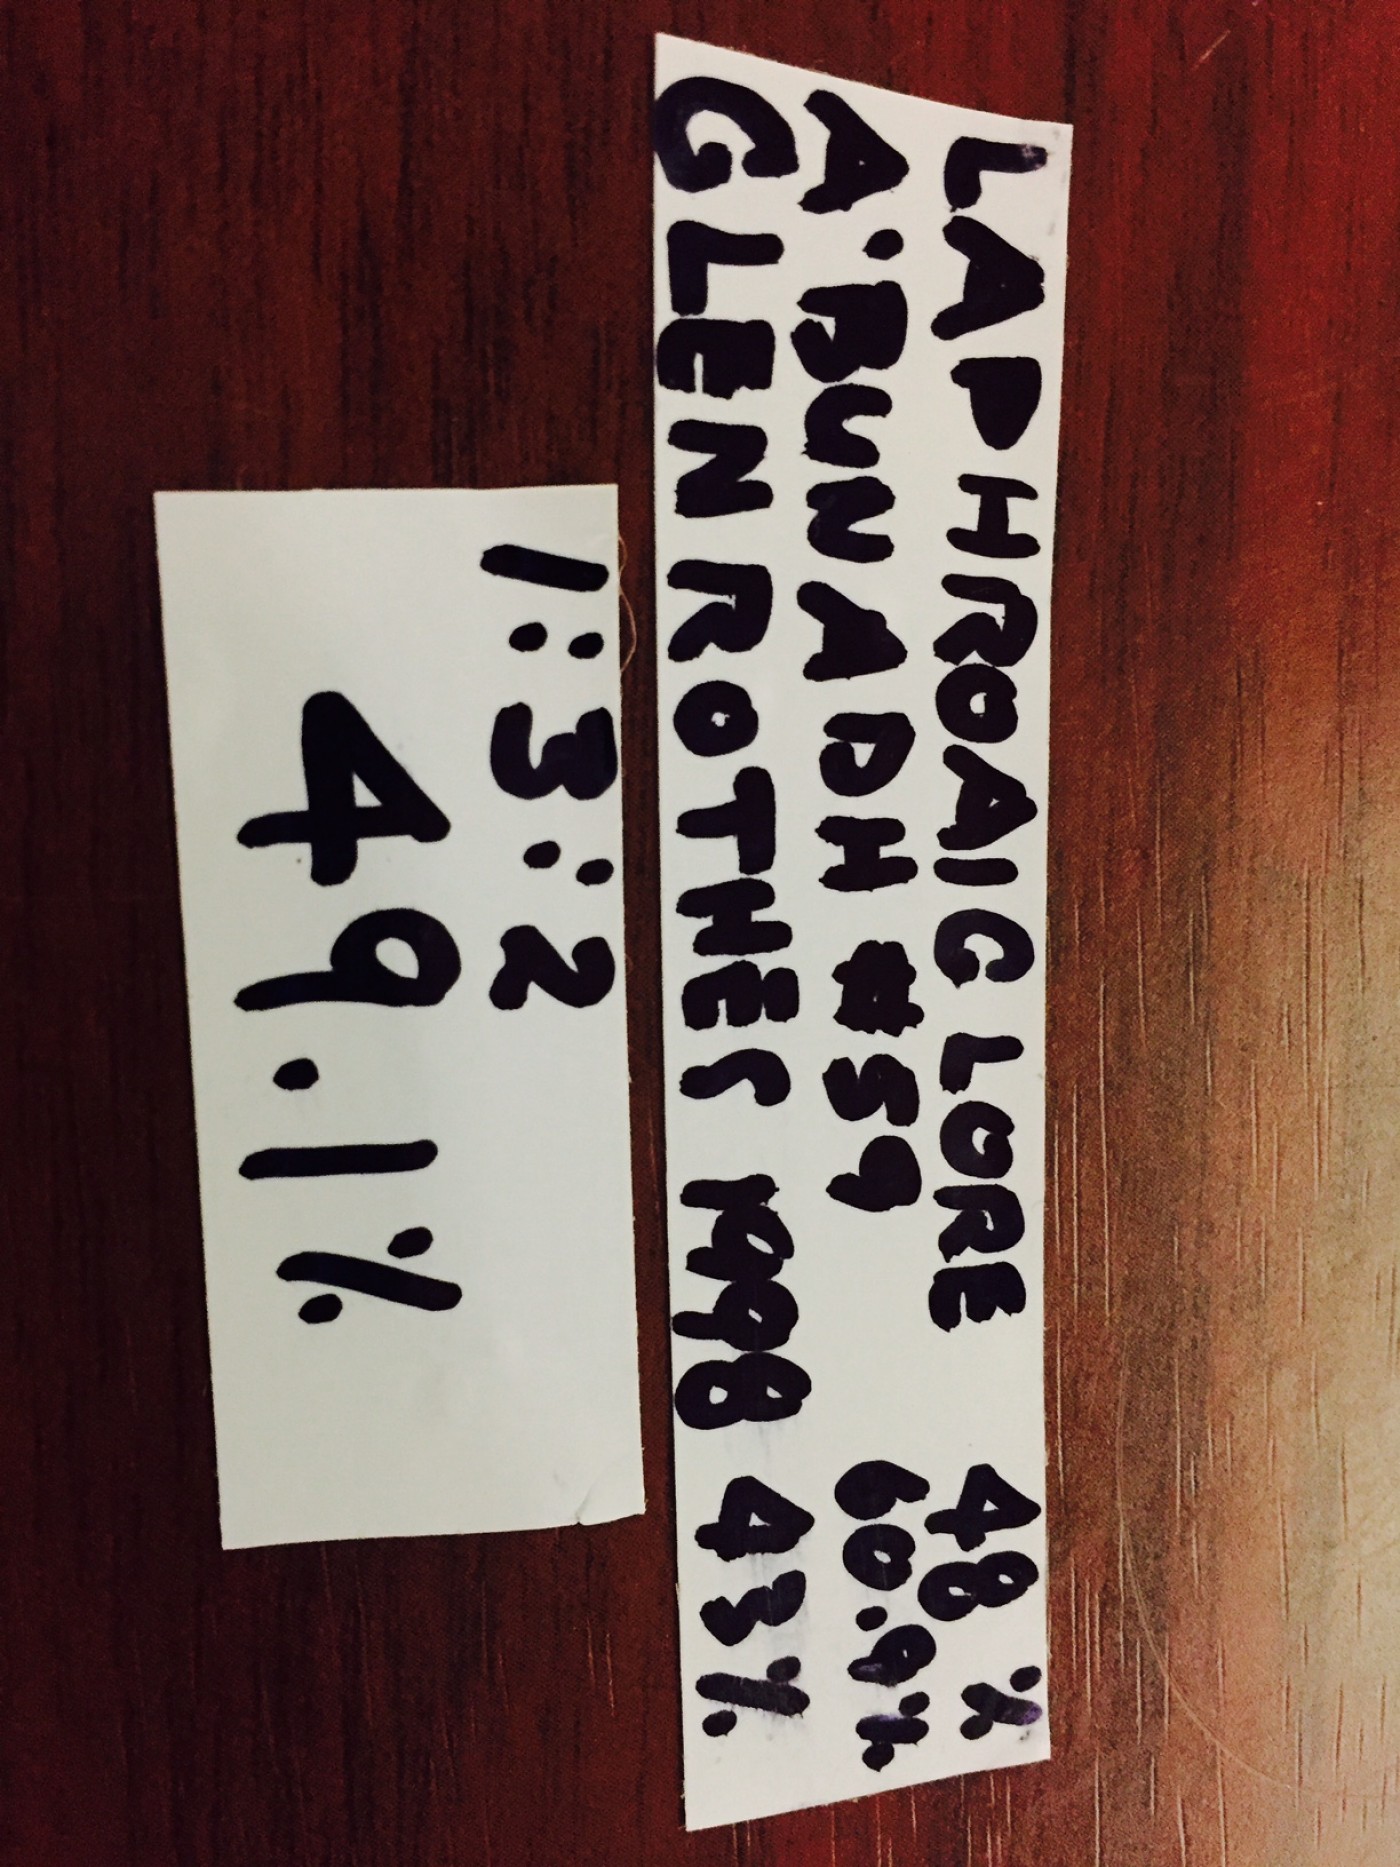 LAPHROAIG LORE 48%
A'BUNADH #59 60.9%
GLENROTHES 1998 43%
1:3:2
49.1%